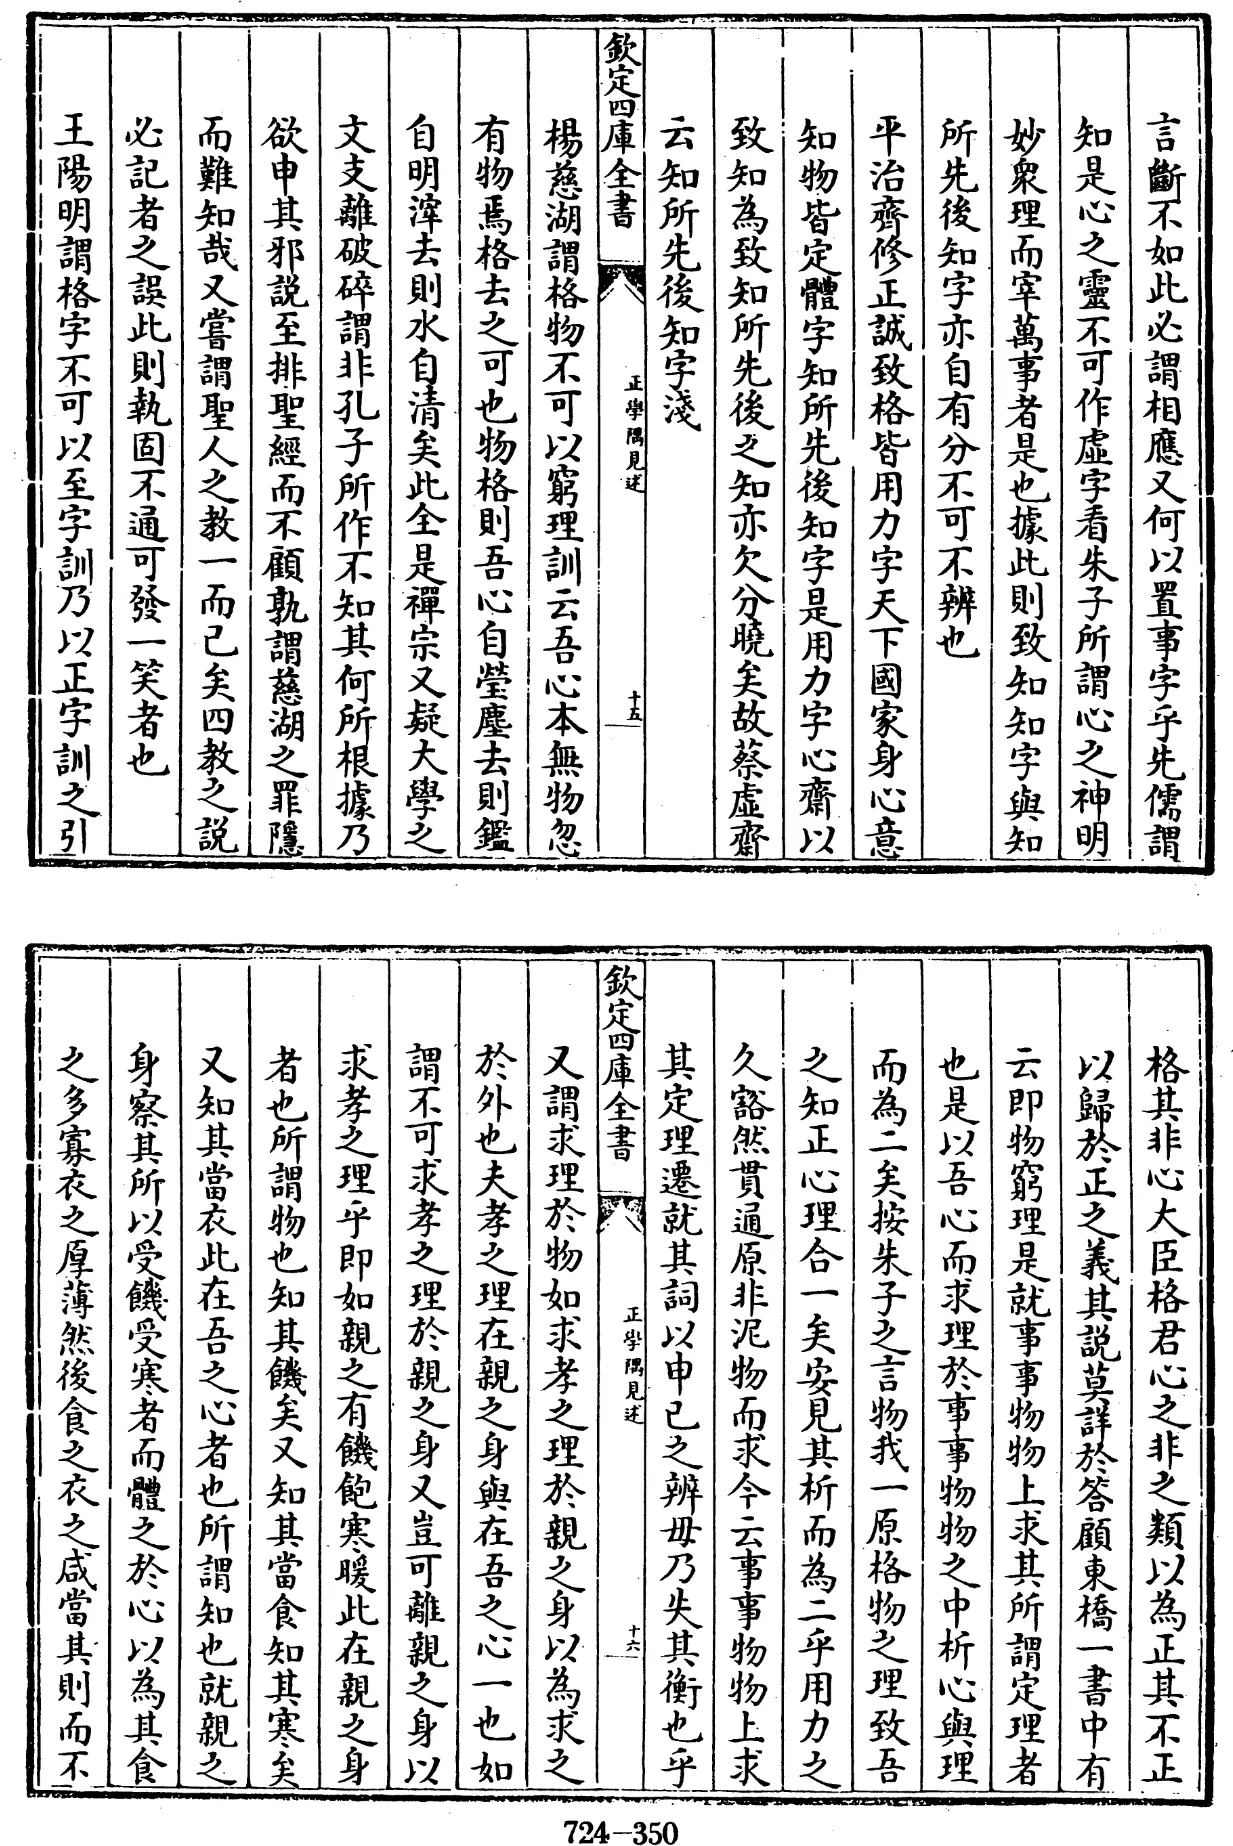 言斷不如此必謂相應又何以置事字乎先儒謂
知是心之靈不可作虛字看朱子所謂心之神明
妙衆理而宰萬事者是也據此則致知知字與知
所先後知字亦自有分不可不辨也
平治齊修正誠致格皆用力字天下國家身心意
知物皆定體字知所先後知字是用力字心齋以
致知為致知所先後之知亦欠分曉矣故蔡虛齋
云知所先後知字淺
欽定四庫全書
正學隅見述
十五
楊慈湖謂格物不可以窮理訓云吾心本無物忽
有物焉格去之可也物格則吾心自瑩塵去則鑑
自明滓去則水自清矣此全是禪宗又疑大學之
文支離破碎謂非孔子所作不知其何所根據乃
欲申其邪説至排聖經而不顧孰謂慈湖之罪隱
而難知哉又嘗謂聖人之教一而已矣四教之説
必記者之誤此則執固不通可發一笑者也
王陽明謂格字不可以至字訓乃以正字訓之引
格其非心大臣格君心之非之類以為正其不正
以歸於正之義其説莫詳於答顧東橋一書中有
云即物窮理是就事事物物上求其所謂定理者
也是以吾心而求理於事事物物之中析心與理
而為二矣按朱子之言物我一原格物之理致吾
之知正心理合一矣安見其析而為二乎用力之
久豁然貫通原非泥物而求今云事事物物上求
其定理遷就其詞以申己之辨毋乃失其衡也乎
欽定四庫全書
正學隅見述
十六
又謂求理於物如求孝之理於親之身以為求之
於外也夫孝之理在親之身與在吾之心一也如
謂不可求孝之理於親之身又豈可離親之身以
求孝之理乎即如親之有饑飽寒暖此在親之身
者也所謂物也知其饑矣又知其當食知其寒矣
又知其當衣此在吾之心者也所謂知也就親之
身察其所以受饑受寒者而體之於心以為其食
之多寡衣之厚薄然後食之衣之咸當其則而不
724-350